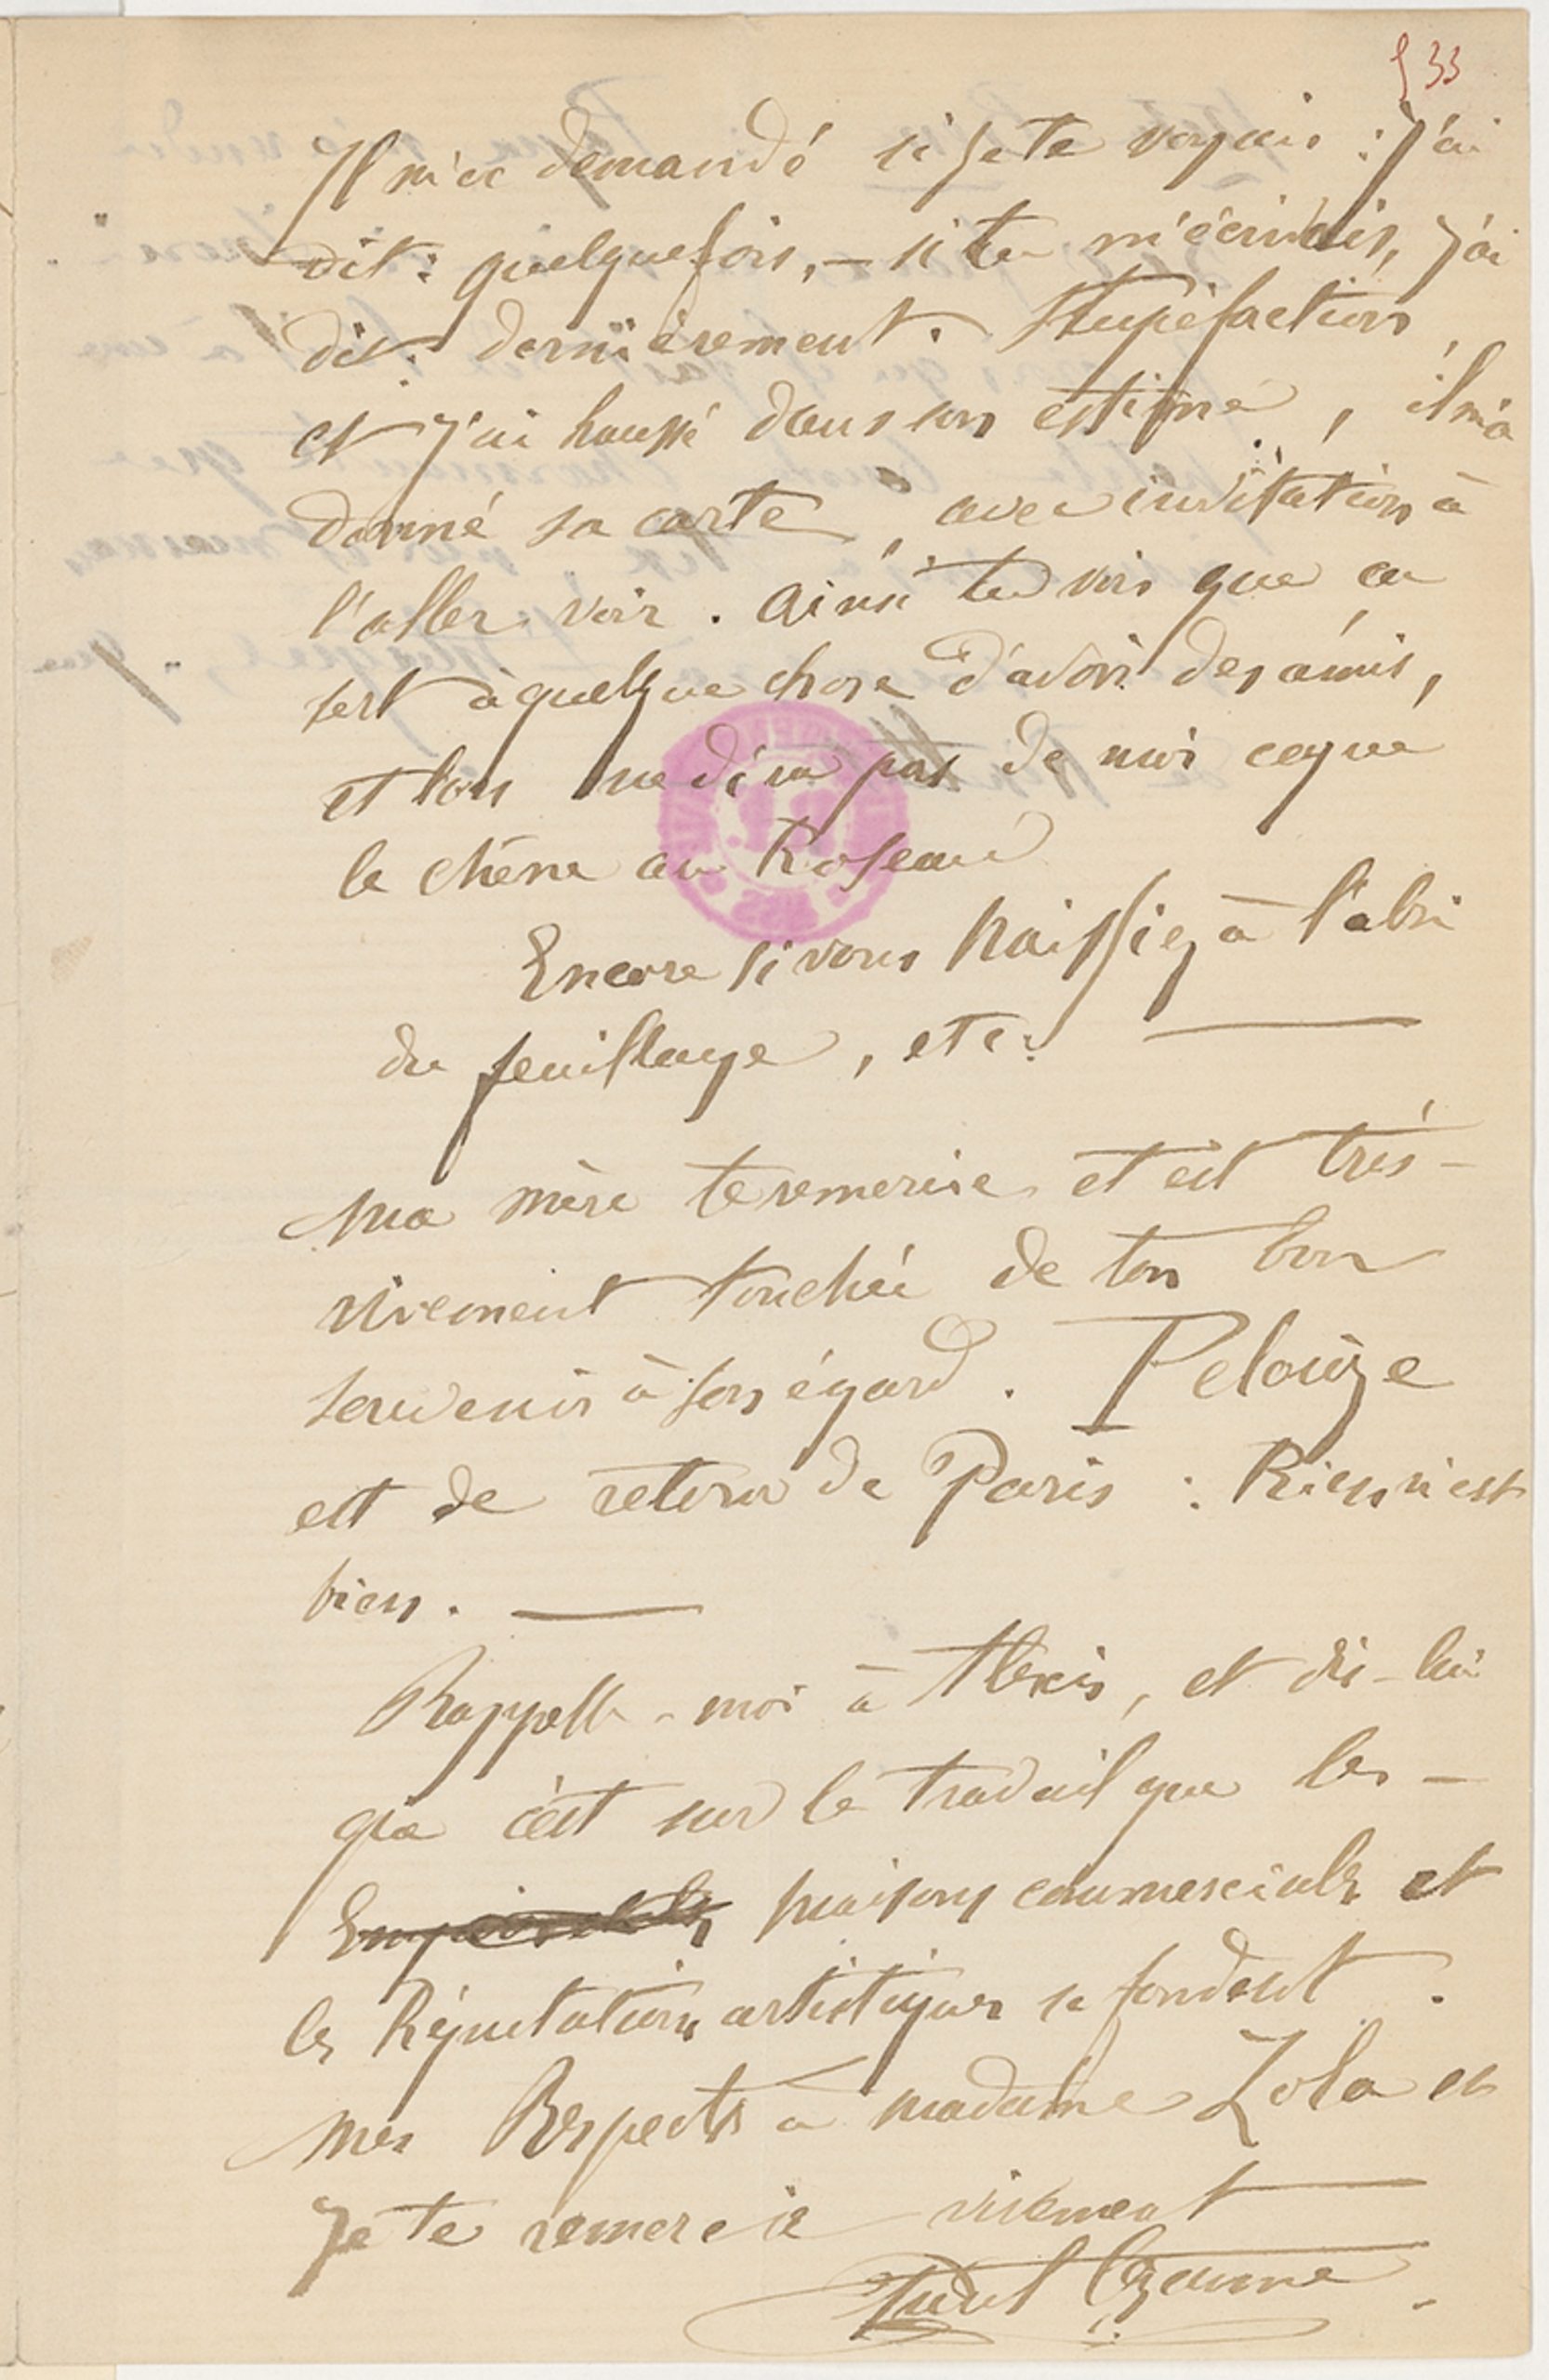 533
Il m'a demandé si je te voyais : J'ai
dit : quelquefois, – si tu m'écrivais, j'ai
dit : dernièrement. Stupéfaction,
et j'ai haussé dans son estime, il m'a
donné sa carte, avec invitation à
l'aller voir. Ainsi tu vois que ça
sert à quelque chose d'avoir des amis,
et l'on ne dira pas de moi ce que
le chêne au Roseau
Encore si vous naissiez à l'abri
du feuillage, etc. —
Ma mère te remercie et est très-
vivement touchée de ton bon
souvenir à son égard. Pelouze
est de retour de Paris : Rien n'est
bien. —
Rappelle-moi à Alexis, et dis-lui
que c'est sur le travail que les –
maisons commerciales et
les Réputations artistiques se fondent.
Mes Respects à madame Zola et
Je te remercie vivement
Paul Cézanne